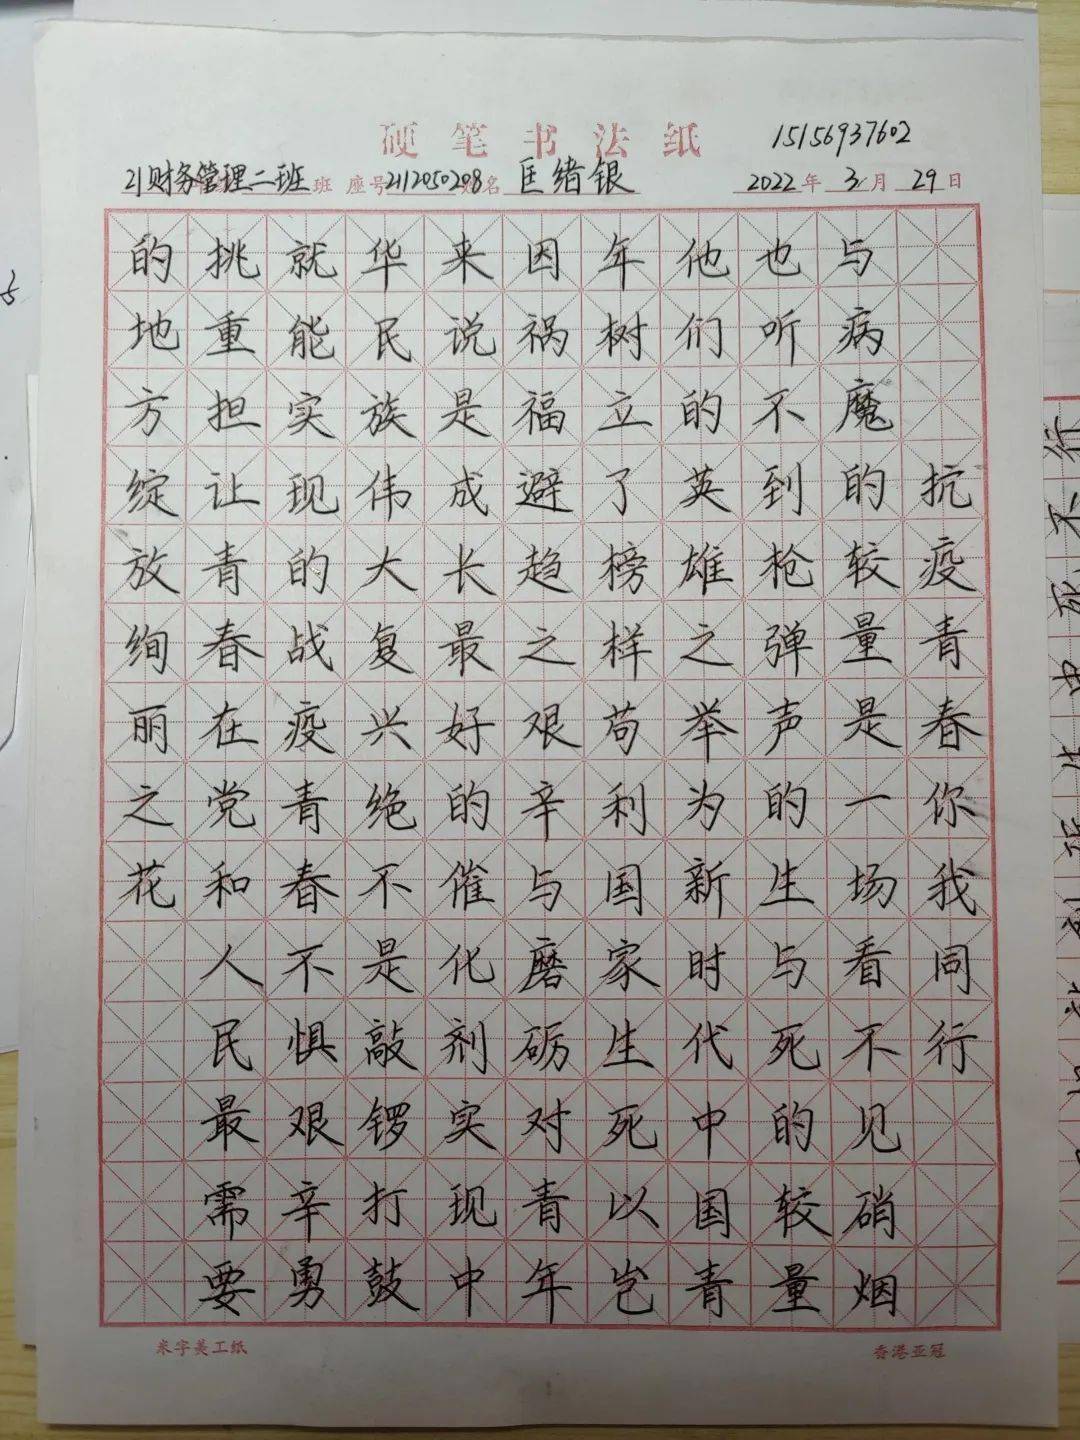 硬笔书法纸
15156937602
21财务管理二班 班 座号 2112050208 姓名 匡绪银 2022年3月29日
抗疫青春你我同行
与病魔的较量是一场看不见硝烟
也听不到枪弹声的生与死的较量
他们的英雄之举为新时代中国青
年树立了榜样苟利国家生死以岂
因祸福避趋之艰辛与磨砺对青年
来说是成长最好的催化剂实现中
华民族伟大复兴绝不是敲锣打鼓
就能实现的战疫青春不惧艰辛勇
挑重担让青春在党和人民最需要
的地方绽放绚丽之花
米字美工纸
香港亚冠